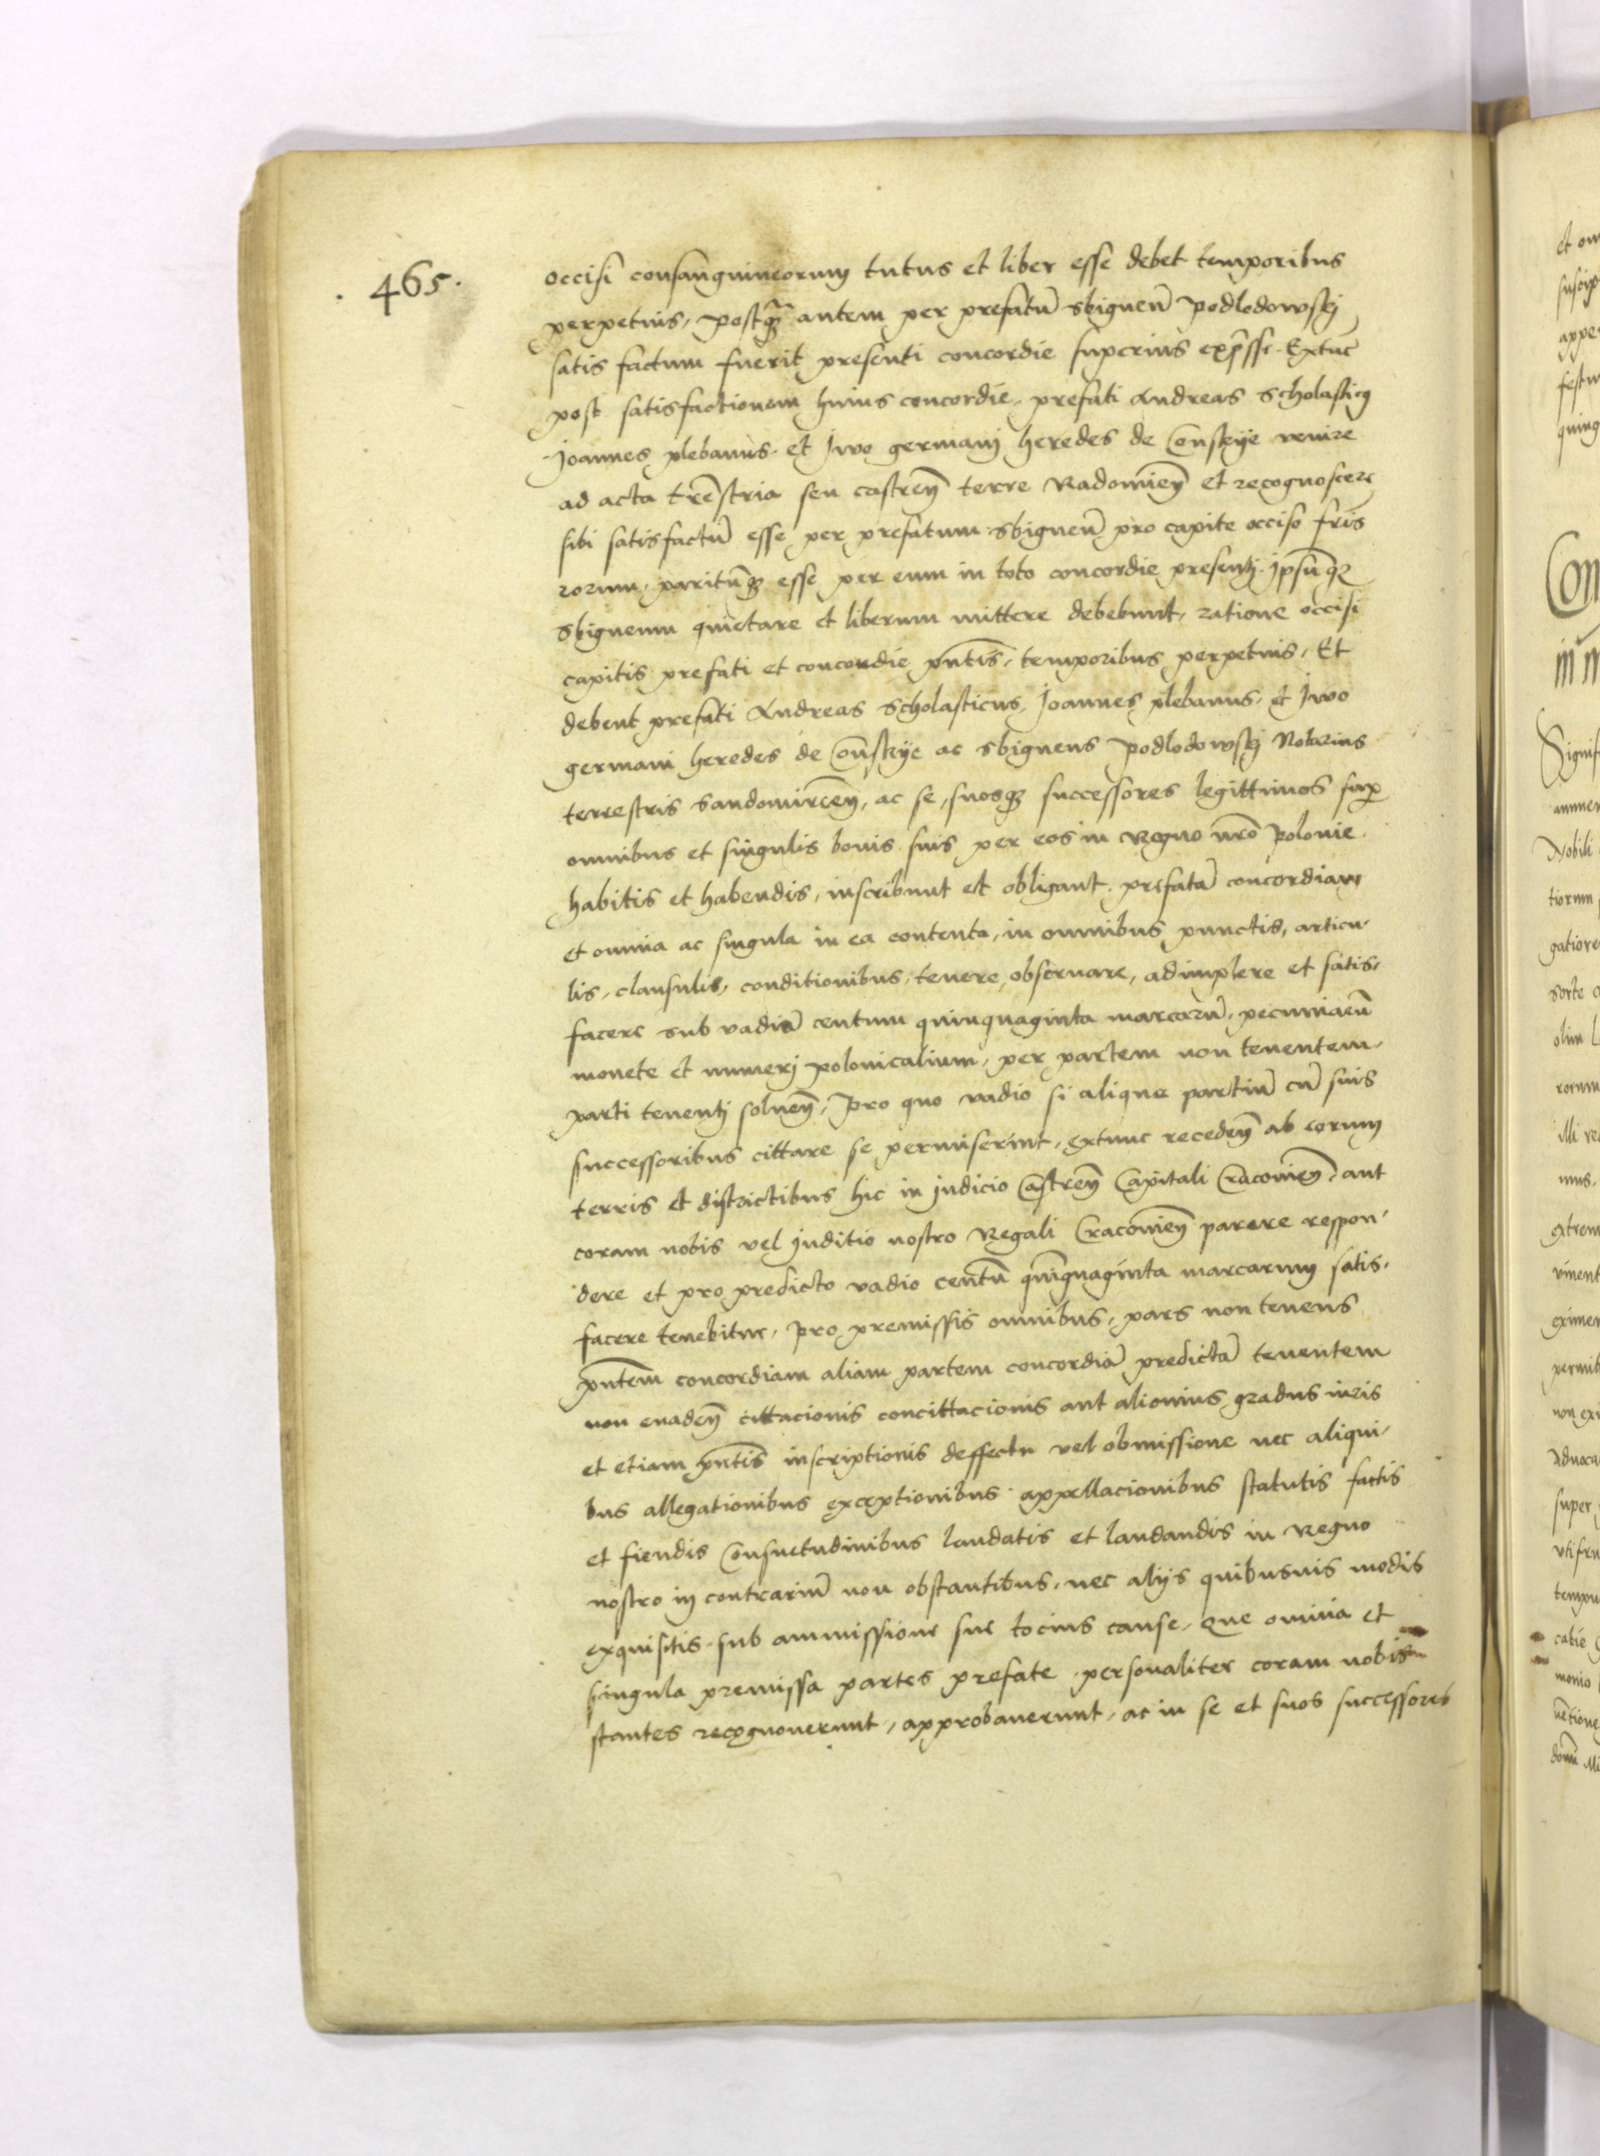 . 465.
occisi consanguineorum tutus et liber esse debet temporibus
perpetuis, postq̄ autem per prefatū sbigneū podlodowskj
satis factum fuerit presenti concordie superius exp̄sse. Extūc
post satisfactionem huius concordie, prefati Andreas Scholasticus
Joannes plebanus. et Jwo germanj heredes de Conskÿe venire
ad acta tr̄estria seu castreñ terre Radomieñ et recognoscere
sibi satisfactū esse per prefatum sbigneū pro capite occiso fr̄is
eorum, paritūq esse per eum in toto concordie presentj. ipsūq
sbigneum quietare et liberum mittere debebunt, ratione occisi
capitis prefati et concordie pn̄tis, temporibus perpetuis, Et
debent prefati Andreas Scholasticus, Joannes plebanus, et Jwo
germani heredes de Conskÿe ac sbigneus podlodowskj Notarius
terrestris Sandomirieñ, ac se, suosq successores legittimos sup
omnibus et singulis bonis suis per eos in Regno nr̄o polonie
habitis et habendis, inscribunt et obligant. prefatā concordiam
et omnia ac singula in ea contenta, in omnibus punctis, articu-
lis, clausulis, conditionibus, tenere, obseruare, adimplere et satis-
facere sub vadiū centum quinquaginta marcarū, pecuniarū
monete et numerj polonicalium, per partem non tenentem.
parti tenentj solueñ, Pro quo vadio si aliqua partiū cū suis
successoribus cittare se permiserint, extunc recedeñ ab eorum
terris et districtibus hic in judicio Castreñ Capitali Cracovieñ, aut
coram nobis vel juditio nostro Regali Cracovieñ parere respon-
dere et pro predicto vadio centū quinquaginta marcarum satis-
facere tenebitur, Pro premissis omnibus, pars non tenens
pn̄tem concordiam aliam partem concordiā predictā tenentem
non euadeñ cittacionis concittacionis aut alicuius gradus iuris
et etiam pn̄tis inscriptionis deffectu vel obmissione nec aliqui-
bus allegationibus exceptionibus appellacionibus statutis factis
et fiendis Consuetudinibus laudatis et laudandis in Regno
nostro in contrariū non obstantibus, nec alijs quibusuis modis
exquisitis. sub ammissione sue tocius cause, Que omnia et
singula premissa partes prefate personaliter coram nobis
stantes recognouerunt, approbauerunt, ac in se et suos successores